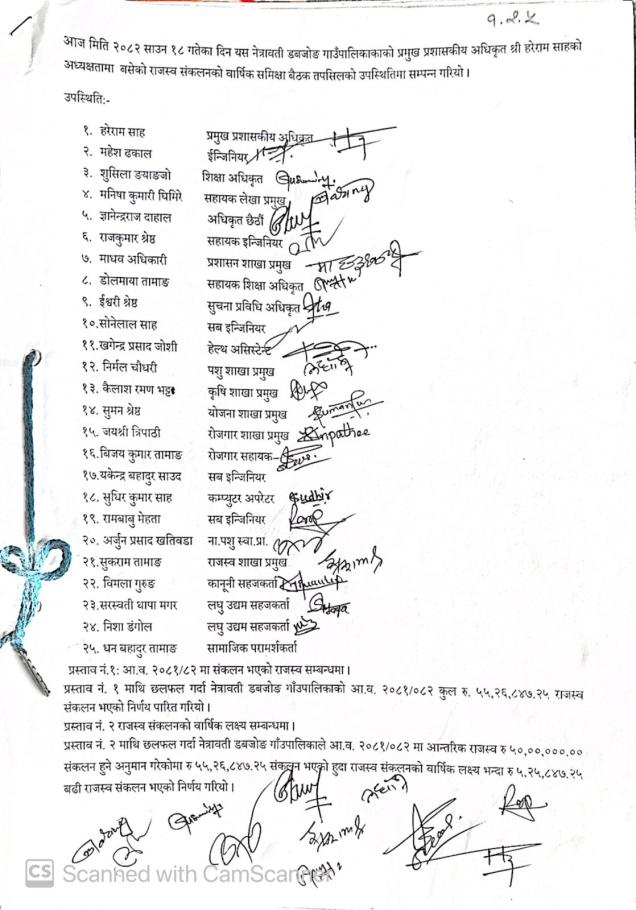 ९.२.५
आज मिति २०८२ साउन १८ गतेका दिन यस नेत्रावती डबजोङ गाउँपालिकाकाको प्रमुख प्रशासकीय अधिकृत श्री हरेराम साहको
अध्यक्षतामा बसेको राजस्व संकलनको वार्षिक समिक्षा बैठक तपसिलको उपस्थितिमा सम्पन्न गरियो।
उपस्थिति:-
१. हरेराम साह प्रमुख प्रशासकीय अधिकृत
२. महेश ढकाल ईन्जिनियर
३. शुसिला ङयाङजो शिक्षा अधिकृत
४. मनिषा कुमारी घिमिरे सहायक लेखा प्रमुख
५. ज्ञानेन्द्रराज दाहाल अधिकृत छैठौं
६. राजकुमार श्रेष्ठ सहायक इन्जिनियर
७. माधव अधिकारी प्रशासन शाखा प्रमुख
८. डोलमाया तामाङ सहायक शिक्षा अधिकृत
९. ईश्वरी श्रेष्ठ सुचना प्रविधि अधिकृत
१०.सोनेलाल साह सब इन्जिनियर
११.खगेन्द्र प्रसाद जोशी हेल्थ असिस्टेन्ट
१२. निर्मल चौधरी पशु शाखा प्रमुख
१३. कैलाश रमण भट्ट कृषि शाखा प्रमुख
१४. सुमन श्रेष्ठ योजना शाखा प्रमुख
१५. जयश्री त्रिपाठी रोजगार शाखा प्रमुख
१६.विजय कुमार तामाङ रोजगार सहायक
१७.यकेन्द्र बहादुर साउद सब इन्जिनियर
१८. सुधिर कुमार साह कम्प्युटर अपरेटर Sudhir
१९. रामबाबु मेहता सब इन्जिनियर
२०. अर्जुन प्रसाद खतिवडा ना.पशु स्वा.प्रा.
२१.सुकराम तामाङ राजस्व शाखा प्रमुख
२२. विमला गुरुङ कानूनी सहजकर्ता
२३.सरस्वती थापा मगर लघु उद्यम सहजकर्ता
२४. निशा डंगोल लघु उद्यम सहजकर्ता
२५. धन बहादुर तामाङ सामाजिक परामर्शकर्ता
प्रस्ताव नं.१: आ.व. २०८१/८२ मा संकलन भएको राजस्व सम्बन्धमा।
प्रस्ताव नं. १ माथि छलफल गर्दा नेत्रावती डबजोङ गाँउपालिकाको आ.व. २०८१/०८२ कुल रु. ५५,२६,८४७.२५ राजस्व
संकलन भएको निर्णय पारित गरियो।
प्रस्ताव नं. २ राजस्व संकलनको वार्षिक लक्ष्य सम्बन्धमा।
प्रस्ताव नं. २ माथि छलफल गर्दा नेत्रावती डबजोङ गाँउपालिकाले आ.व. २०८१/०८२ मा आन्तरिक राजस्व रु ५०,००,०००.००
संकलन हुने अनुमान गरेकोमा रु ५५,२६,८४७.२५ संकलन भएको हुदा राजस्व संकलनको वार्षिक लक्ष्य भन्दा रु ५.२५,८४७.२५
बढी राजस्व संकलन भएको निर्णय गरियो।
CS Scanned with CamScanner